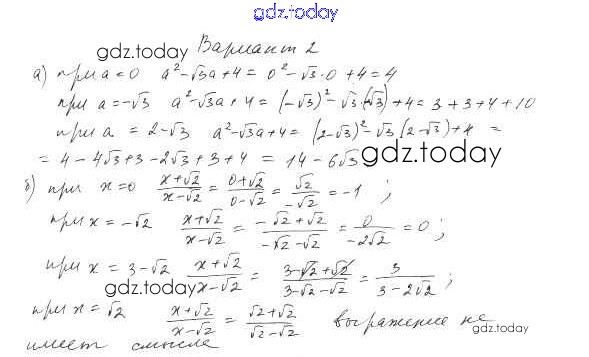 gdz.today
Вариант 2
gdz.today
а) при a=0 a²-√3a+4=0²-√3·0+4=4
при a=-√3 a²-√3a+4=(-√3)²-√3·(-√3)+4=3+3+4+10
при a=2-√3 a²-√3a+4=(2-√3)²-√3(2-√3)+4=
=4-4√3+3-2√3+3+4=14-6√3
gdz.today
б) при x=0 (x+√2)/(x-√2)=(0+√2)/(0-√2)=√2/(-√2)=-1;
при x=-√2 (x+√2)/(x-√2)=(-√2+√2)/(-√2-√2)=0/(-2√2)=0;
при x=3-√2 (x+√2)/(x-√2)=(3-√2+√2)/(3-√2-√2)=3/(3-2√2);
gdz.today
при x=√2 (x+√2)/(x-√2)=(√2+√2)/(√2-√2) выражение не
gdz.today
имеет смысла